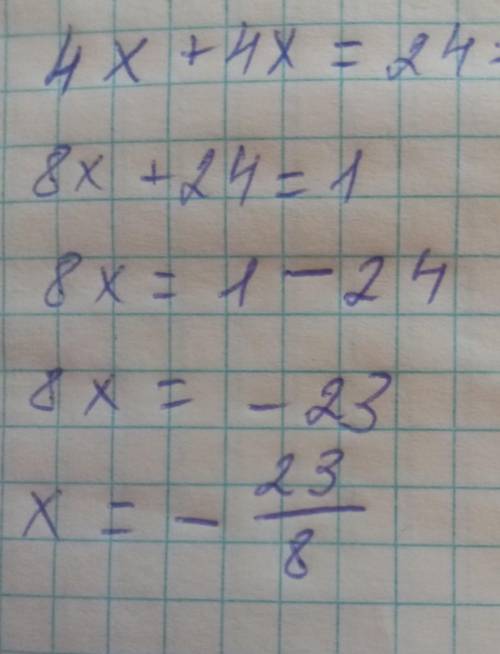 4x + 4x = 24 =
8x + 24 = 1
8x = 1 - 24
8x = - 23
x = - 23/8